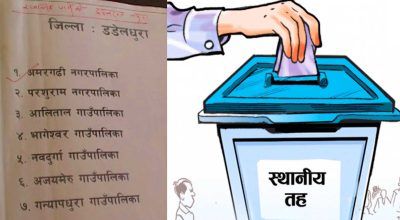 जिल्ला : डडेलधुरा
१. अमरगढी नगरपालिका
२. परशुराम नगरपालिका
३. आलिताल गाउँपालिका
४. भागेश्वर गाउँपालिका
५. नवदुर्गा गाउँपालिका
६. अजयमेरु गाउँपालिका
७. गन्यापधुरा गाउँपालिका
स्थानीय
तह